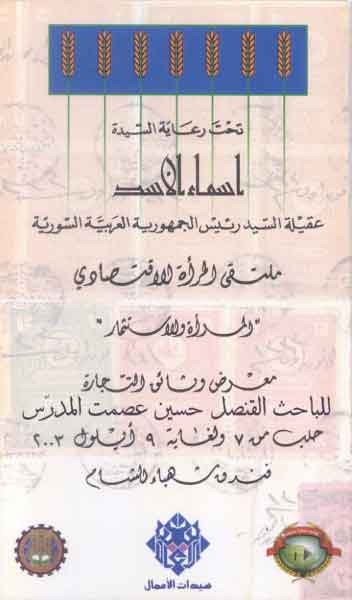 تحت رعاية السيدة
اسماء الاسد
عقيلة السيد رئيس الجمهورية العربية السورية
ملتقى المرأة الاقتصادي
"المرأة والاستثمار"
معرض وثائق التجارة
للباحث القنصل حسين عصمت المدرس
حلب من ٧ ولغاية ٩ أيلول ٢٠٠٣
فندق شهباء الشام
سيدات الأعمال